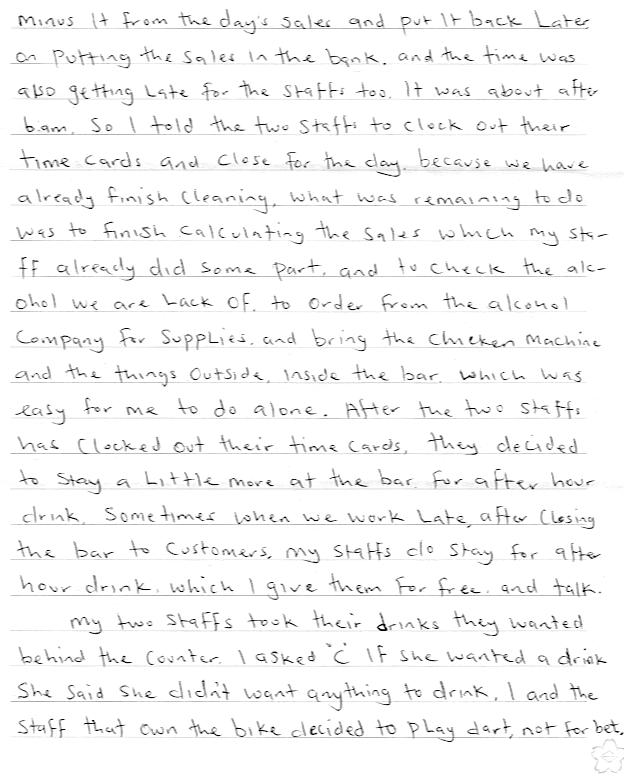 minus It from the day's sales and put It back Later
on Putting the Sales In the bank. and the time was
also getting Late for the Staffs too. It was about after
6.am. So I told the two Staffs to Clock out their
time cards and Close for the day. because we have
already finish Cleaning, what was remaining to do
was to finish Calculating the Sales which my sta-
ff already did some Part. and to check the alc-
ohol we are Lack Of. to order from the alcohol
Company for Supplies. and bring the Chicken Machine
and the things Outside, Inside the bar. which was
easy for me to do alone. After the two Staffs
has Clocked out their time Cards, they decided
to Stay a Little more at the bar. for after hour
drink. Sometimes when we work Late, after Closing
the bar to Customers, my Staffs do Stay for after
hour drink. which I give them For free. and talk.
my two Staffs took their drinks they wanted
behind the Counter. I asked "C" If she wanted a drink
She Said She didn't want anything to drink. I and the
Staff that own the bike decided to Play dart, not for bet.